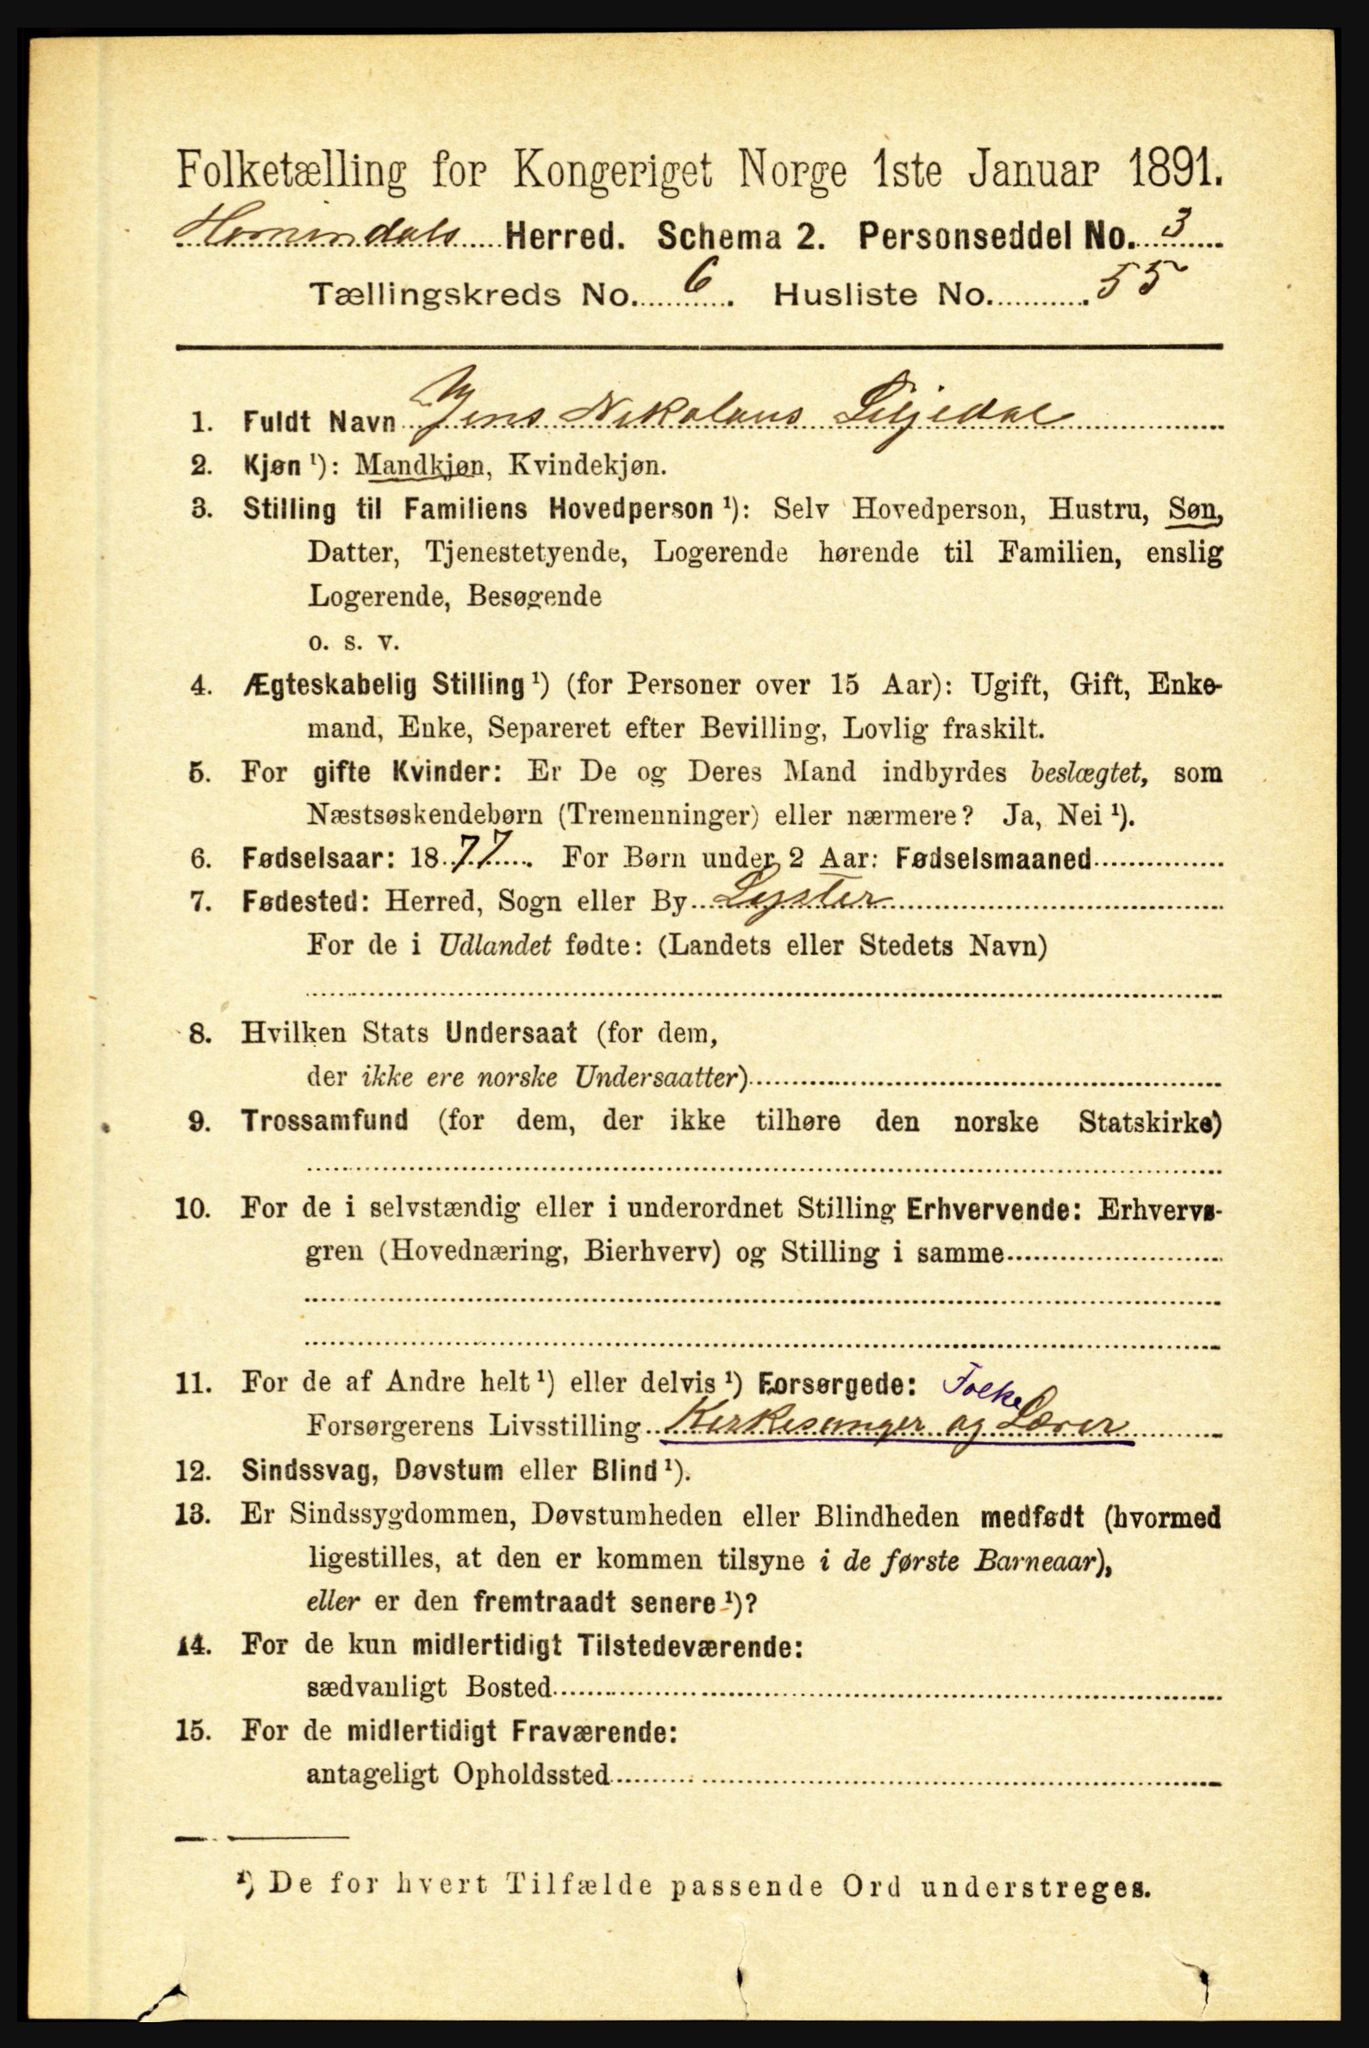 Folketælling for Kongeriget Norge 1ste Januar 1891.
Hornindals Herred. Schema 2. Personseddel No. 3
Tællingskreds No. 6. Husliste No. 55
1. Fuldt Navn Jens Nikolaus Liljedal
2. Kjøn ¹): Mandkjøn, Kvindekjøn.
3. Stilling til Familiens Hovedperson ¹): Selv Hovedperson, Hustru, Søn,
Datter, Tjenestetyende, Logerende hørende til Familien, enslig
Logerende, Besøgende
o. s. v.
4. Ægteskabelig Stilling ¹) (for Personer over 15 Aar): Ugift, Gift, Enke-
mand, Enke, Separeret efter Bevilling, Lovlig fraskilt.
5. For gifte Kvinder: Er De og Deres Mand indbyrdes beslægtet, som
Næstsøskendebørn (Tremenninger) eller nærmere? Ja, Nei ¹).
6. Fødselsaar: 1877. For Børn under 2 Aar: Fødselsmaaned
7. Fødested: Herred, Sogn eller By Lyster
For de i Udlandet fødte: (Landets eller Stedets Navn)
8. Hvilken Stats Undersaat (for dem,
der ikke ere norske Undersaatter)
9. Trossamfund (for dem, der ikke tilhøre den norske Statskirke)
10. For de i selvstændig eller i underordnet Stilling Erhvervende: Erhvervs-
gren (Hovednæring, Bierhverv) og Stilling i samme
11. For de af Andre helt ¹) eller delvis ¹) Forsørgede: Folke
Forsørgerens Livsstilling Kirkesanger og Lærer
12. Sindssvag, Døvstum eller Blind ¹).
13. Er Sindssygdommen, Døvstumheden eller Blindheden medfødt (hvormed
ligestilles, at den er kommen tilsyne i de første Barneaar),
eller er den fremtraadt senere ¹)?
14. For de kun midlertidigt Tilstedeværende:
sædvanligt Bosted
15. For de midlertidigt Fraværende:
antageligt Opholdssted
¹) De for hvert Tilfælde passende Ord understreges.